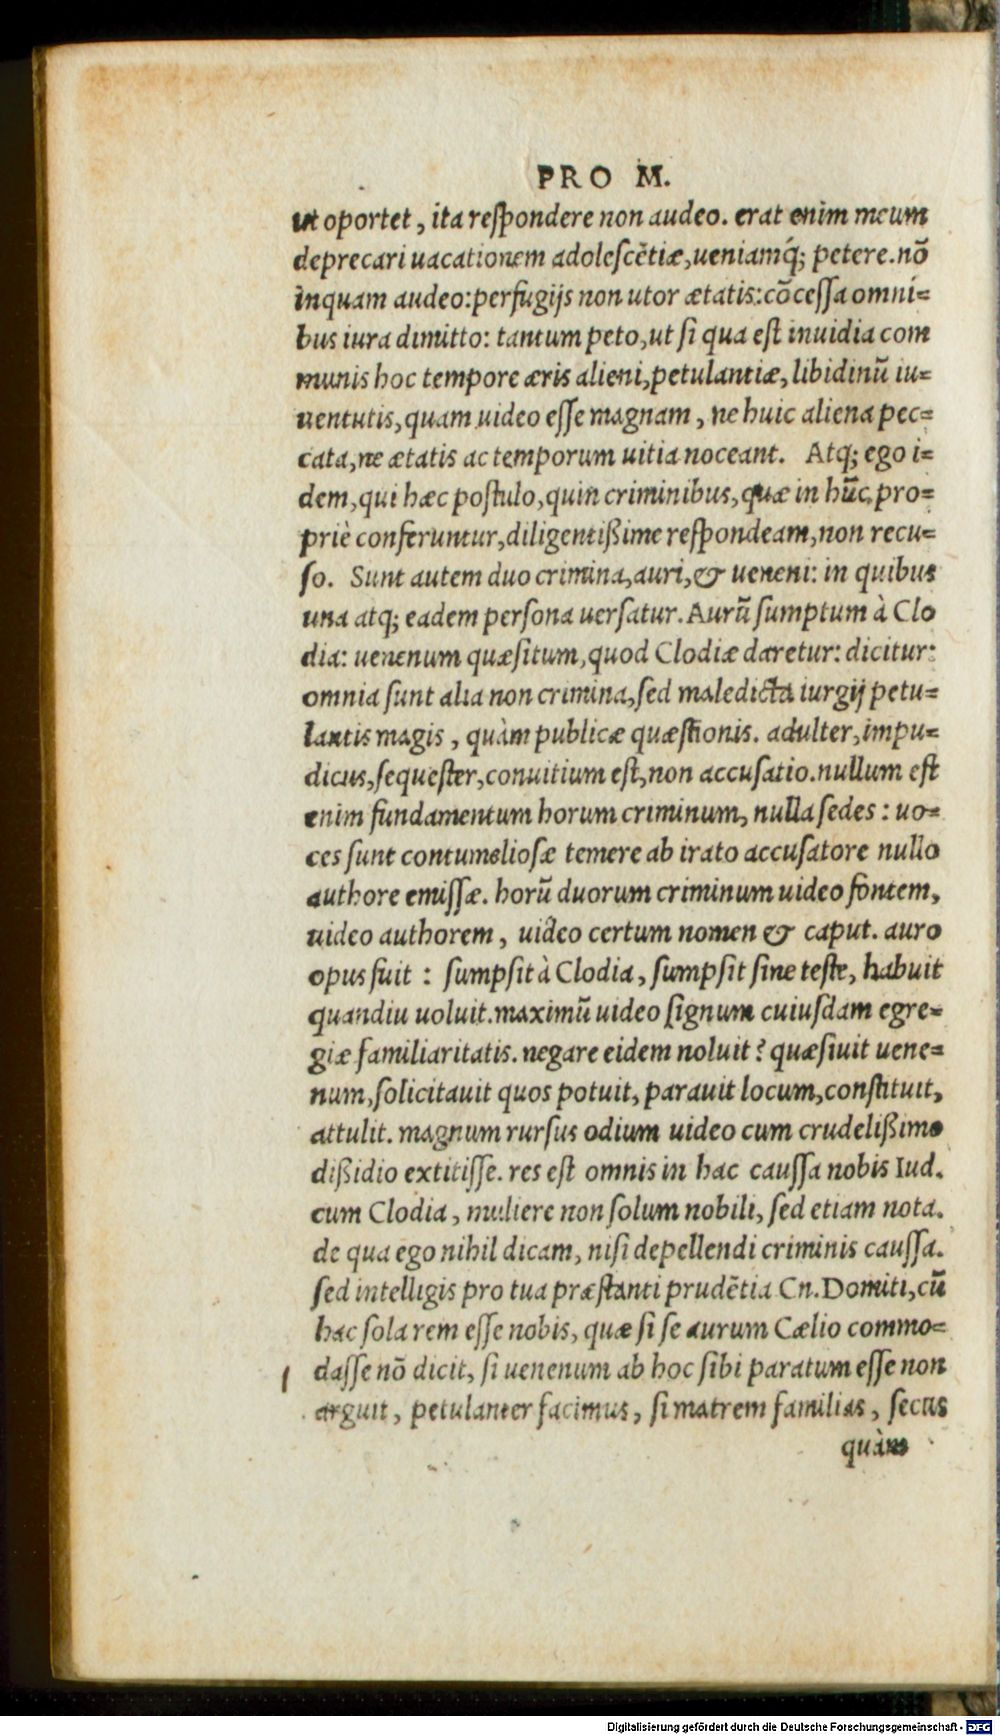 PRO M.
ut oportet, ita reſpondere non audeo. erat enim meum
deprecari uacationem adoleſcẽtiæ, ueniamq́; petere. nõ
inquam audeo: perfugijs non utor ætatis: cõceſſa omni=
bus iura dimitto: tantum peto, ut ſi qua eſt inuidia com
munis hoc tempore æris alieni, petulantiæ, libidinũ iu=
uentutis, quam uideo eſſe magnam, ne huic aliena pec=
cata, ne ætatis ac temporum uitia noceant. Atq; ego i=
dem, qui hæc poſtulo, quin criminibus, quæ in hũc pro=
priè conferuntur, diligentißime reſpondeam, non recu=
ſo. Sunt autem duo crimina, auri, & ueneni: in quibus
una atq; eadem perſona uerſatur. Aurũ ſumptum à Clo
dia: uenenum quæſitum, quod Clodiæ daretur: dicitur:
omnia ſunt alia non crimina, ſed maledicta iurgij petu=
lantis magis, quàm publicæ quæſtionis. adulter, impu=
dicus, ſequeſter, conuitium eſt, non accuſatio. nullum eſt
enim fundamentum horum criminum, nulla ſedes: uo=
ces ſunt contumelioſæ temere ab irato accuſatore nullo
authore emiſſæ. horũ duorum criminum uideo fontem,
uideo authorem, uideo certum nomen & caput. auro
opus fuit: ſumpſit à Clodia, ſumpſit ſine teſte, habuit
quandiu uoluit. maximũ uideo ſignum cuiuſdam egre=
giæ familiaritatis. negare eidem noluit? quæſiuit uene=
num, ſolicitauit quos potuit, parauit locum, conſtituit,
attulit. magnum rurſus odium uideo cum crudelißimo
dißidio extitiſſe. res eſt omnis in hac cauſſa nobis Iud.
cum Clodia, muliere non ſolum nobili, ſed etiam nota.
de qua ego nihil dicam, niſi depellendi criminis cauſſa.
ſed intelligis pro tua præſtanti prudẽtia Cn. Domiti, cũ
hac ſola rem eſſe nobis, quæ ſi ſe aurum Cælio commo=
daſſe nõ dicit, ſi uenenum ab hoc ſibi paratum eſſe non
arguit, petulanter facimus, ſi matrem familias, ſecus
quàm
Digitalisierung gefördert durch die Deutsche Forschungsgemeinschaft - DFG